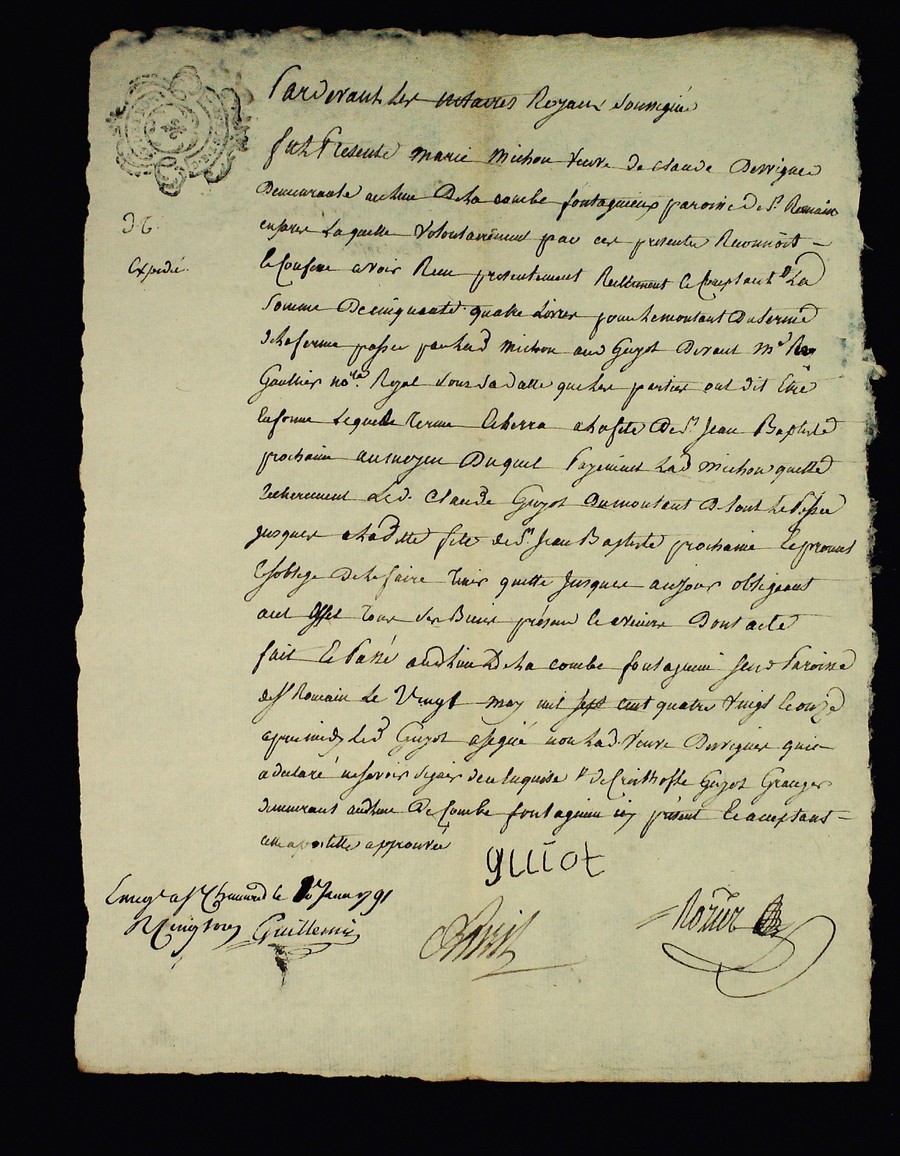 Pardevant Les notaires Royaux soussigné
fut Presente marie michon veuve de claude Dervigne
Demeurante au lieu De la combe fontagnieux paroisse de St Romain
laquelle volontairement par ces presente Reconnoit
et Confesse avoir Reçu presentement Reellement et Comptant Dud
somme De cinquante quatre Livres pour le montant du terme
de la ferme passée par lad michon aud Guyot Devant Me
Gaultier nore Royal sous sa datte que les parties ont dit Etre
en forme lequel terme Echerra a la fete De St Jean Baptiste
prochaine au moyen Duquel Payement Lad michon quitte
Led. Claude Guyot du montant De tout le Passé
jusques a ladtte fete de St Jean Baptiste prochaine et promet
et soblige De le faire tenir quitte jusques au jour obligeant
a cet effet tous ses Biens présens et avenirs Dont acte
fait Et Passé aud lieu De la combe fontagnieu Paroisse
de St Romain Le Vingt may mil sept cent quatre vingt et onze
apresmidy led Guyot a signé non lad. veuve Dervigne qui
a declaré ne savoir signer de ce enquise de Cristhofle Guyot Granger
demeurant aud lieu De Combe fontagnieu icy présent et acceptant
cette apostille approuvée
guiot
3 C.
Expedié.
Enregé a St Chamond le Juin 1791
R cinq sous Guillemin
Rozier